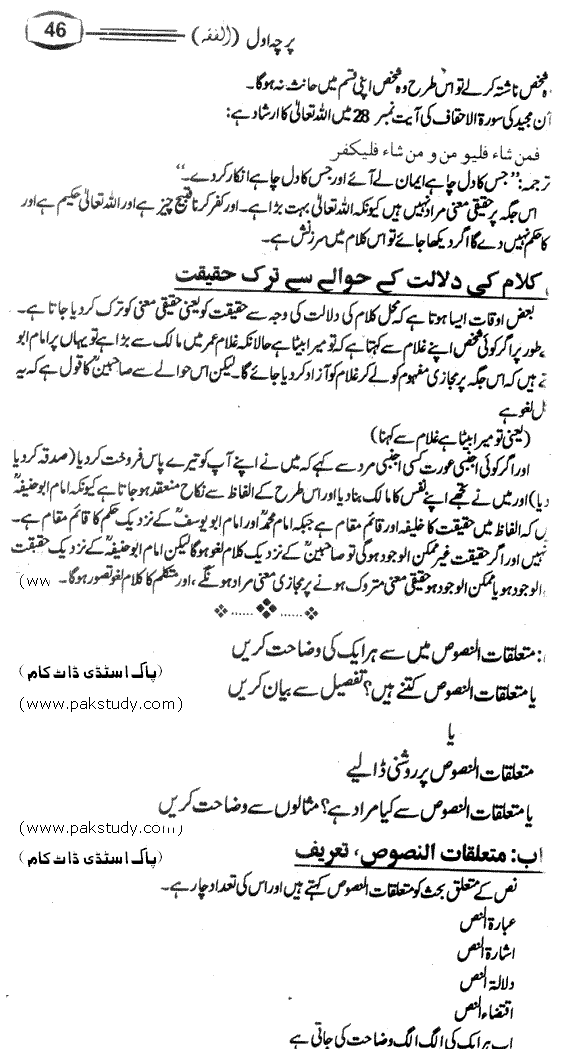 46
پرچہ اول (الفقہ)
ہ شخص ناشتہ کر لے تو اس طرح وہ شخص اپنی قسم میں حانث نہ ہو گا۔
آن مجید کی سورۃ الاحقاف کی آیت نمبر 28 میں اللہ تعالیٰ کا ارشاد ہے:
فمن شاء فليو من و من شاء فليكفر
ترجمہ: ’’جس کا دل چاہے ایمان لے آئے اور جس کا دل چاہے انکار کر دے۔‘‘
اس جگہ پر حقیقی معنی مراد نہیں ہیں کیونکہ اللہ تعالیٰ بہت بڑا ہے۔ اور کفر کرنا قبیح چیز ہے اور اللہ تعالیٰ حکیم ہے اور
کا حکم نہیں دے گا اگر دیکھا جائے تو اس کلام میں سرزنش ہے۔
کلام کی دلالت کے حوالے سے ترک حقیقت
بعض اوقات ایسا ہوتا ہے کہ محل کلام کی دلالت کی وجہ سے حقیقت کو یعنی حقیقی معنی کو ترک کر دیا جاتا ہے۔
طور پر اگر کوئی شخص اپنے غلام سے کہتا ہے کہ تو میرا بیٹا ہے حالانکہ غلام عمر میں مالک سے بڑا ہے تو یہاں پر امام ابو
تے ہیں کہ اس جگہ پر مجازی مفہوم کو لے کر غلام کو آزاد کر دیا جائے گا۔ لیکن اس حوالے سے صاحبینؒ کا قول ہے کہ یہ
ل لغو ہے
(یعنی تو میرا بیٹا ہے غلام سے کہنا)
اور اگر کوئی اجنبی عورت کسی اجنبی مرد سے کہے کہ میں نے اپنے آپ کو تیرے پاس فروخت کر دیا (صدقہ کر دیا
دیا) اور میں نے تجھے اپنے نفس کا مالک بنا دیا اور اس طرح کے الفاظ سے نکاح منعقد ہو جاتا ہے کیونکہ امام ابو حنیفہؒ
ں کہ الفاظ میں حقیقت کا خلیفہ اور قائم مقام ہے جبکہ امام محمدؒ اور امام ابو یوسفؒ کے نزدیک حکم کا قائم مقام ہے۔
نہیں اور اگر حقیقت غیر ممکن الوجود ہو گی تو صاحبینؒ کے نزدیک کلام لغو ہو گا لیکن امام ابو حنیفہؒ کے نزدیک حقیقت
الوجود ہو یا ممکن الوجود ہو حقیقی معنی متروک ہونے پر مجازی معنی مراد ہونگے، اور متکلم کا کلام لغو تصور ہو گا۔ (ww
: متعلقات النصوص میں سے ہر ایک کی وضاحت کریں
(پاک اسٹڈی ڈاٹ کام)
یا متعلقات النصوص کتنے ہیں؟ تفصیل سے بیان کریں
(www.pakstudy.com)
یا
متعلقات النصوص پر روشنی ڈالیے
یا متعلقات النصوص سے کیا مراد ہے؟ مثالوں سے وضاحت کریں
(www.pakstudy.com)
اب: متعلقات النصوص، تعریف
(پاک اسٹڈی ڈاٹ کام)
نص کے متعلق بحث کو متعلقات النصوص کہتے ہیں اور اس کی تعداد چار ہے۔
عبارۃ النص
اشارۃ النص
دلالۃ النص
اقتضاء النص
اب ہر ایک کی الگ الگ وضاحت کی جاتی ہے